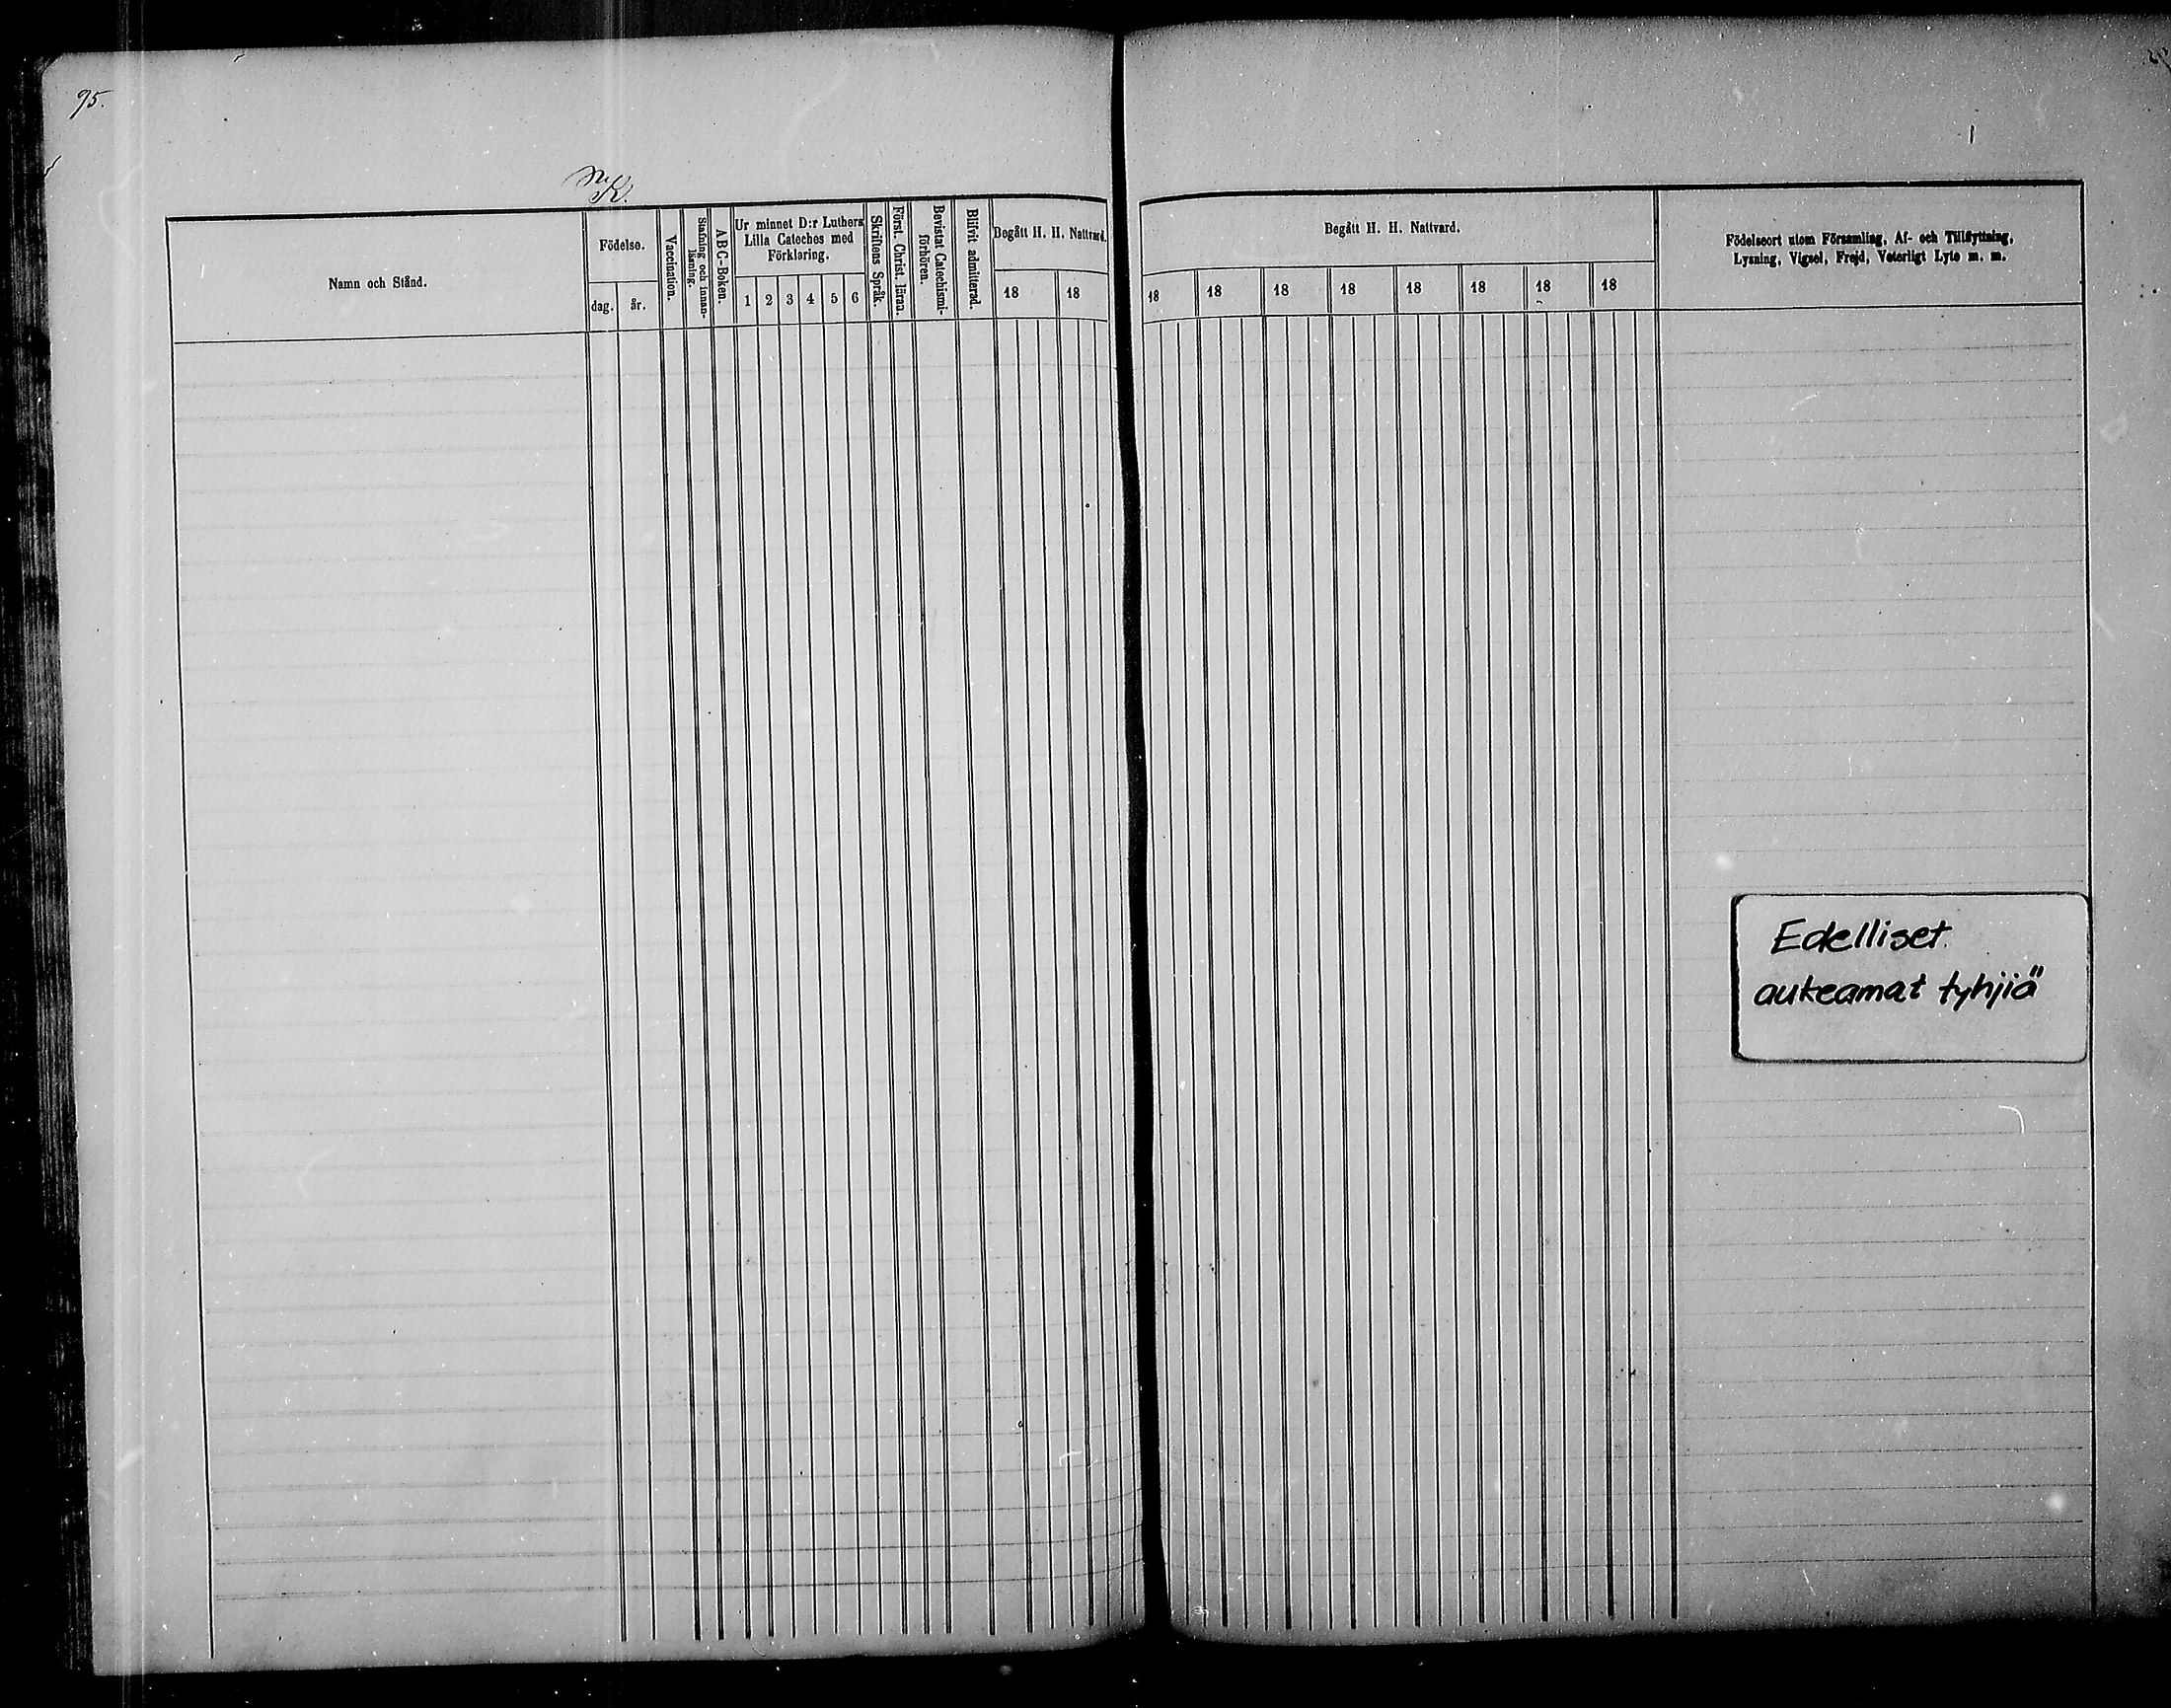 95.
K.
Namn och Stånd.
Födelse.
dag.
år.
Vaccination.
Stafning och innan-
läsning.
ABC-Boken.
Ur minnet D:r Luthers
Lilla Cateches med
Förklaring.
1 2 3 4 5 6
Skriftens Språk.
Först. Christ. läran.
Bevistat Catechismi-
förhören.
Blifvit admitterad.
Begått H. H. Nattvard.
18 18
Begått H. H. Nattvard.
18 18 18 18 18 18 18 18
Födelseort utom Församling, Af- och Tillflyttning,
Lysning, Vigsel, Frejd, Veterligt Lyte m. m.
Edelliset
aukeamat tyhjiä